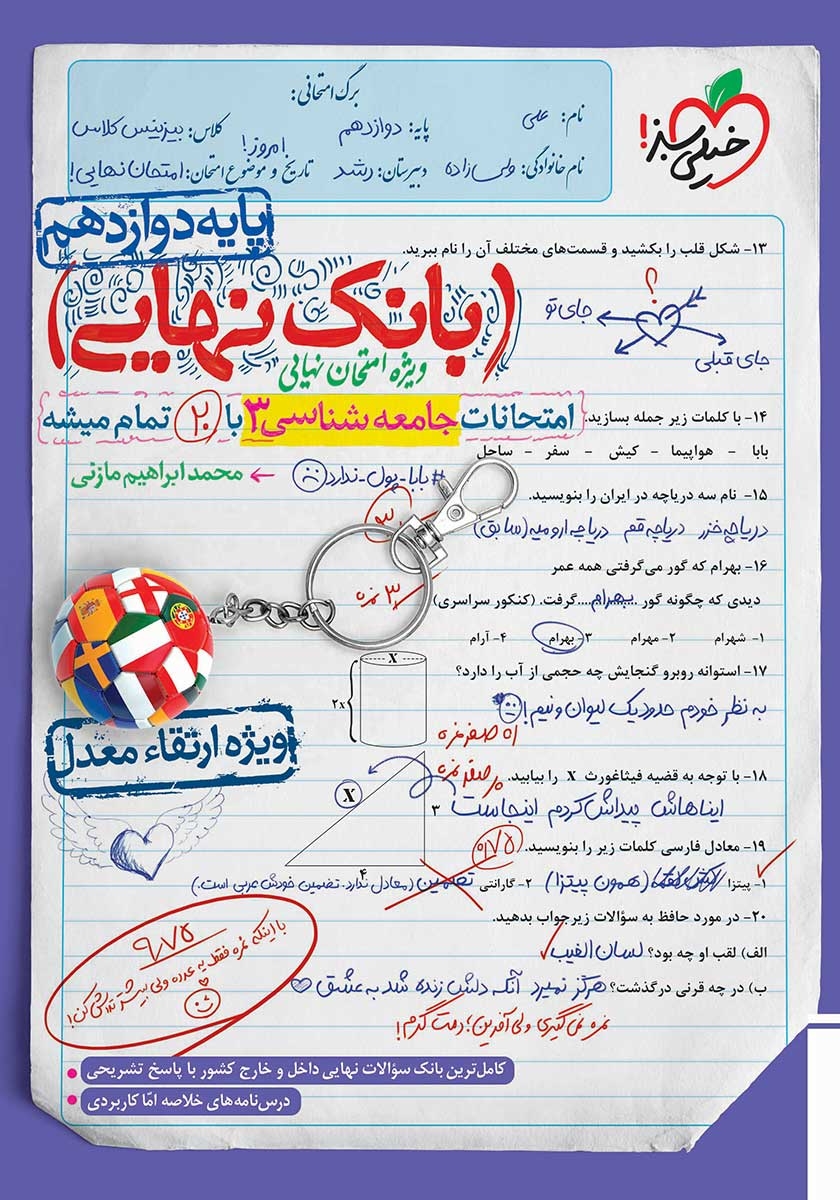 خیلی سبز!
برگ امتحانی:
نام: علی
پایه: دوازدهم
کلاس: بیزینس کلاس
نام خانوادگی: ولی زاده
دبیرستان: رشد
تاریخ و موضوع امتحان: امروز! امتحان نهایی!
پایه دوازدهم
۱۳- شکل قلب را بکشید و قسمت‌های مختلف آن را نام ببرید.
(بانک نهایی)
؟
جای تو
جای قبلی
ویژه امتحان نهایی
۱۴- با کلمات زیر جمله بسازید.
امتحانات جامعه شناسی ۳ با ۲۰ تمام میشه
بابا - هواپیما - کیش - سفر - ساحل
#بابا-پول-ندارد
محمد ابراهیم مازنی
۱۵- نام سه دریاچه در ایران را بنویسید.
دریاچه خزر دریاچه قم دریاچه ارومیه (سابق)
۱۶- بهرام که گور می‌گرفتی همه عمر
دیدی که چگونه گور ....بهرام.... گرفت. (کنکور سراسری)
۳ نمره
۱- شهرام ۲- مهرام ۳- بهرام ۴- آرام
۱۷- استوانه روبرو گنجایش چه حجمی از آب را دارد؟
X
۲x
به نظر خودم حدود یک لیوان و نیم!
صفر نمره
ویژه ارتقاء معدل
۱۸- با توجه به قضیه فیثاغورث X را بیابید.
صفر نمره
X
۳
۴
ایناهاش پیداش کردم اینجاست
۱۹- معادل فارسی کلمات زیر را بنویسید.
۰/۷۵
۱- پیتزا (همون پیتزا) ۲- گارانتی تضمین (معادل ندارد. تضمین خودش عربی است.)
۲۰- در مورد حافظ به سؤالات زیر جواب بدهید.
الف) لقب او چه بود؟ لسان الغیب
ب) در چه قرنی درگذشت؟ هرگز نمیرد آنکه دلش زنده شد به عشق
نمره نمی‌گیری ولی آفرین؛ دمت گرم!
۹/۷۵
با اینکه نمره فقط یه عدده ولی بیشتر تلاش کن!
کامل‌ترین بانک سؤالات نهایی داخل و خارج کشور با پاسخ تشریحی
درس‌نامه‌های خلاصه امّا کاربردی